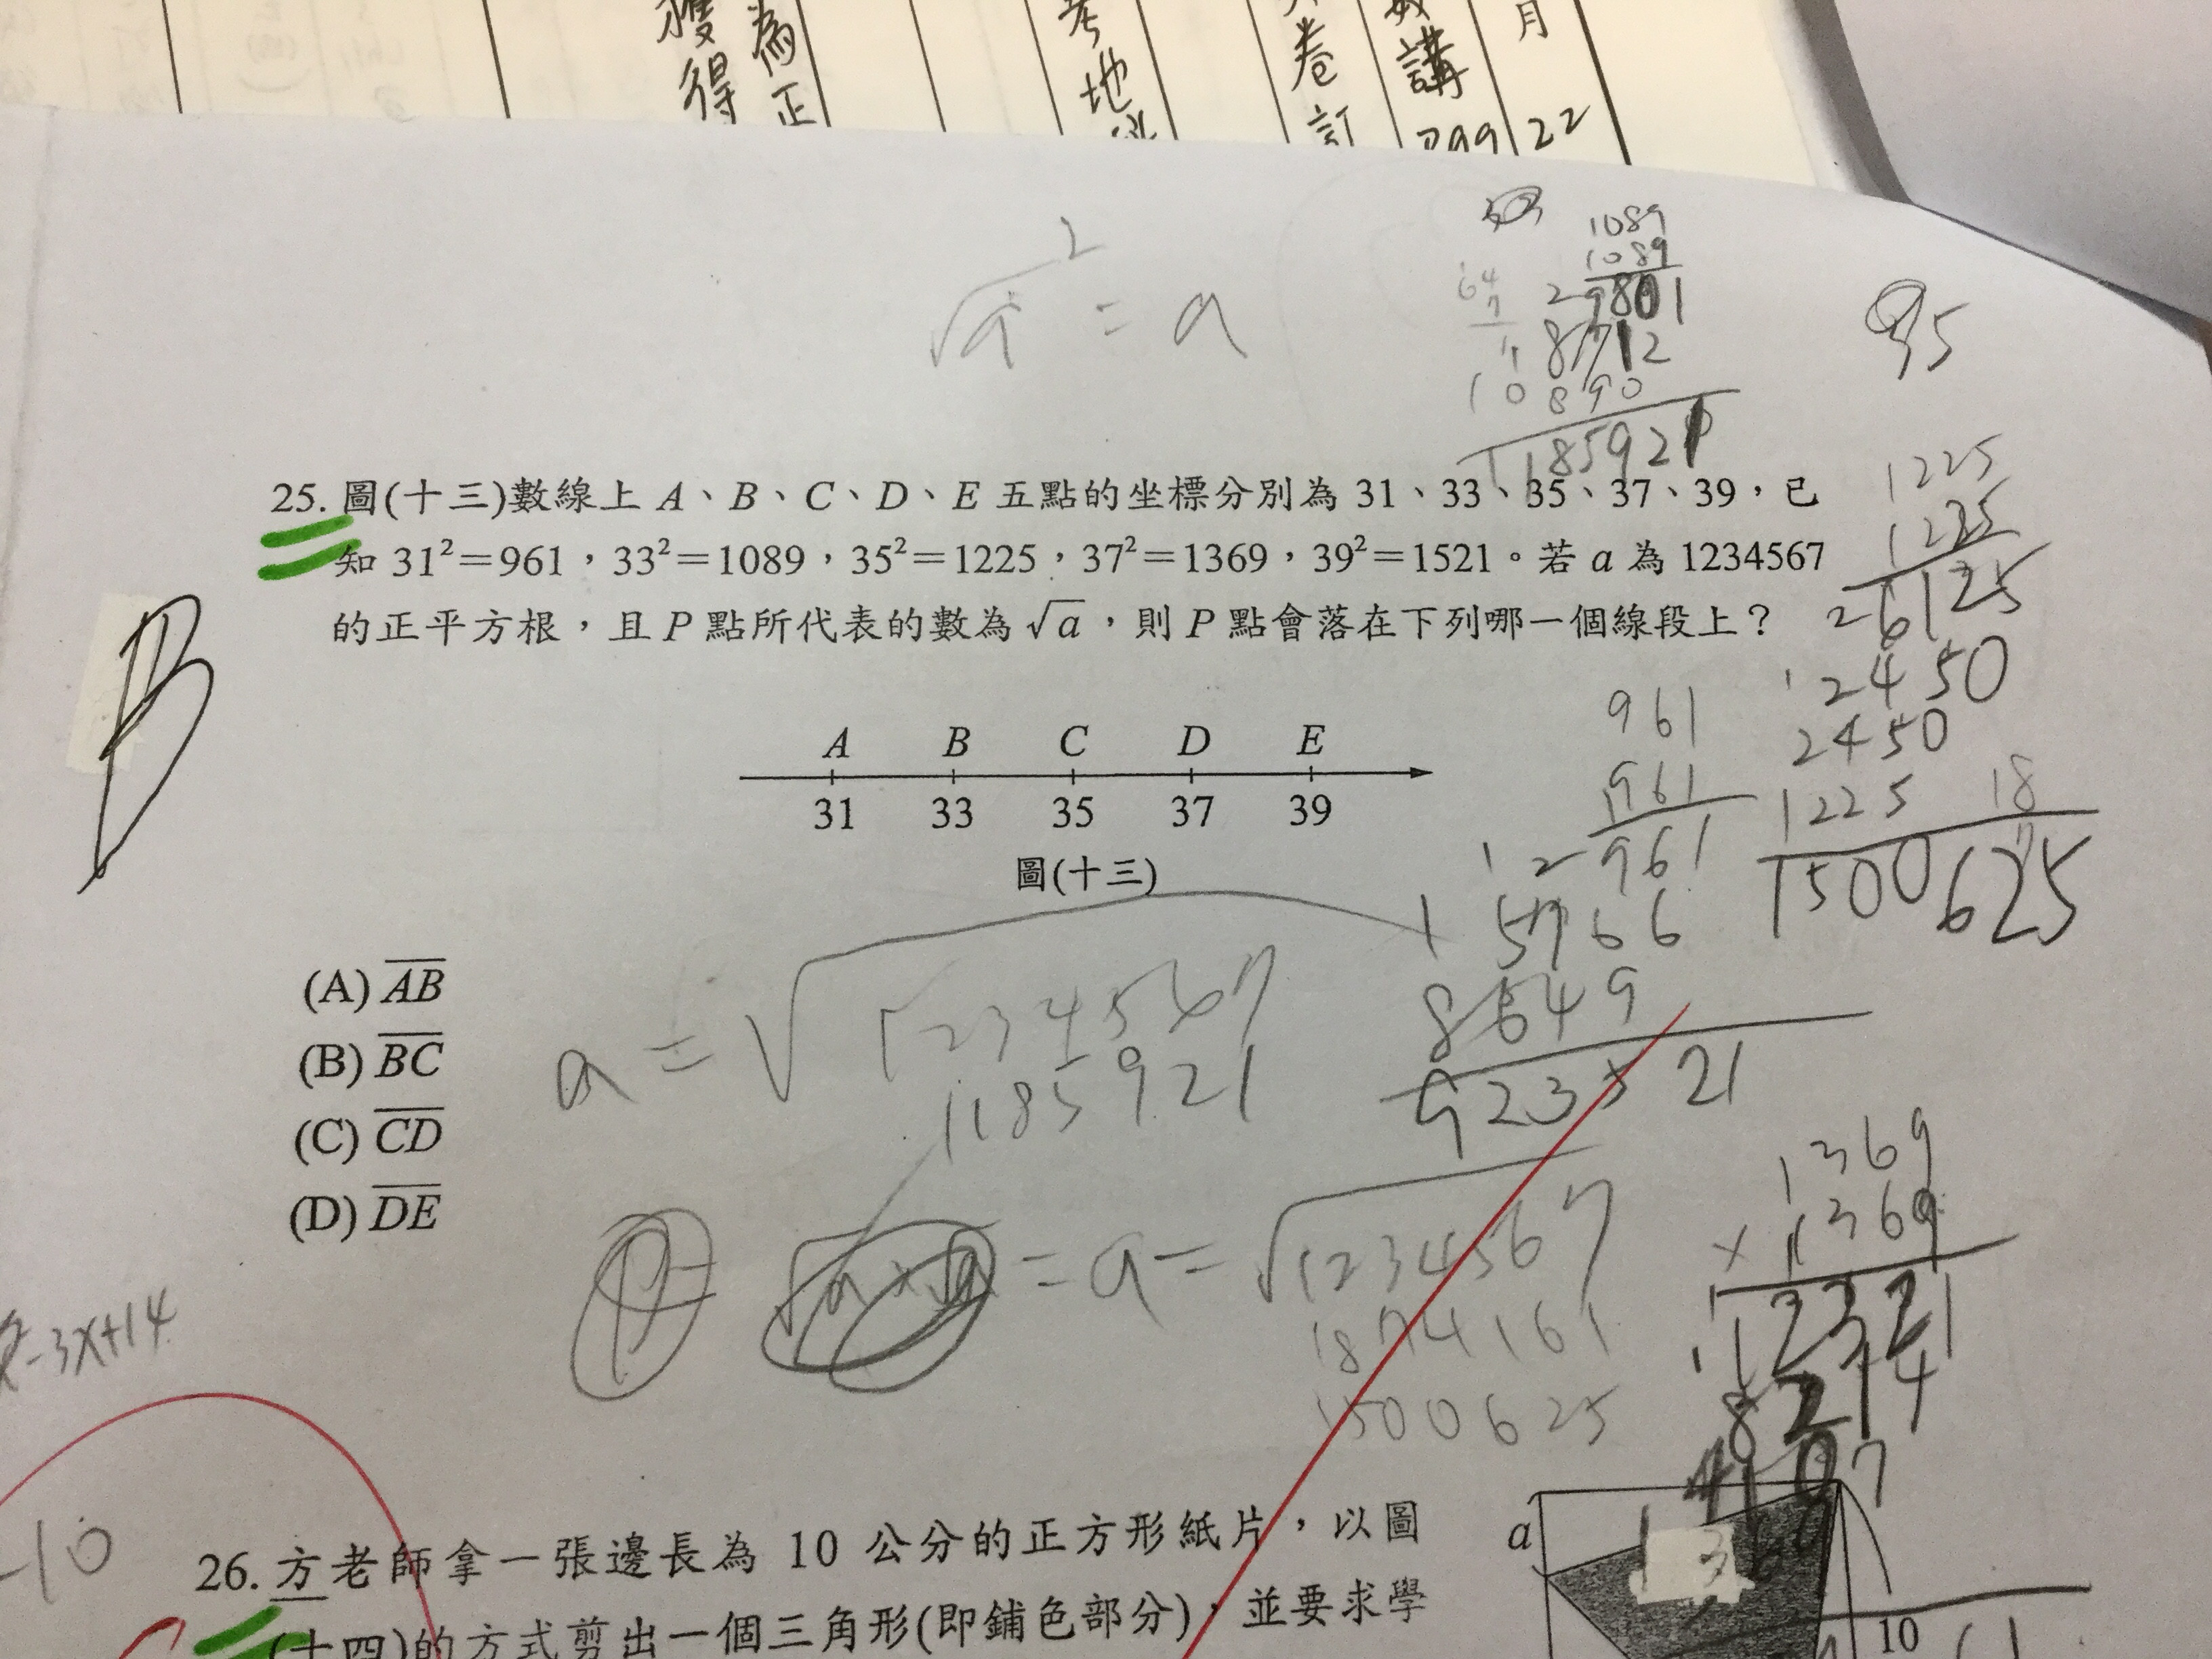 獲得
為正
考地
卷訂
講
月 22
√a² = a
1089
1089
9801
8712
10890
1185921
95
25. 圖(十三)數線上 A、B、C、D、E 五點的坐標分別為 31、33、35、37、39，已
知 31²=961，33²=1089，35²=1225，37²=1369，39²=1521。若 a 為 1234567
的正平方根，且 P 點所代表的數為 √a，則 P 點會落在下列哪一個線段上？
B
1225
1225
26125
12450
2450
1225
18
1500625
A B C D E
31 33 35 37 39
圖(十三)
961
961
961
5766
8649
923521
(A) AB
(B) BC
(C) CD
(D) DE
a = √1234567
1185921
= a = √1234567
1874161
1500625
1369
× 1369
12321
8214
4107
-3x+14
-10
26. 方老師拿一張邊長為 10 公分的正方形紙片，以圖
(十四)的方式剪出一個三角形(即鋪色部分)，並要求學
a
10